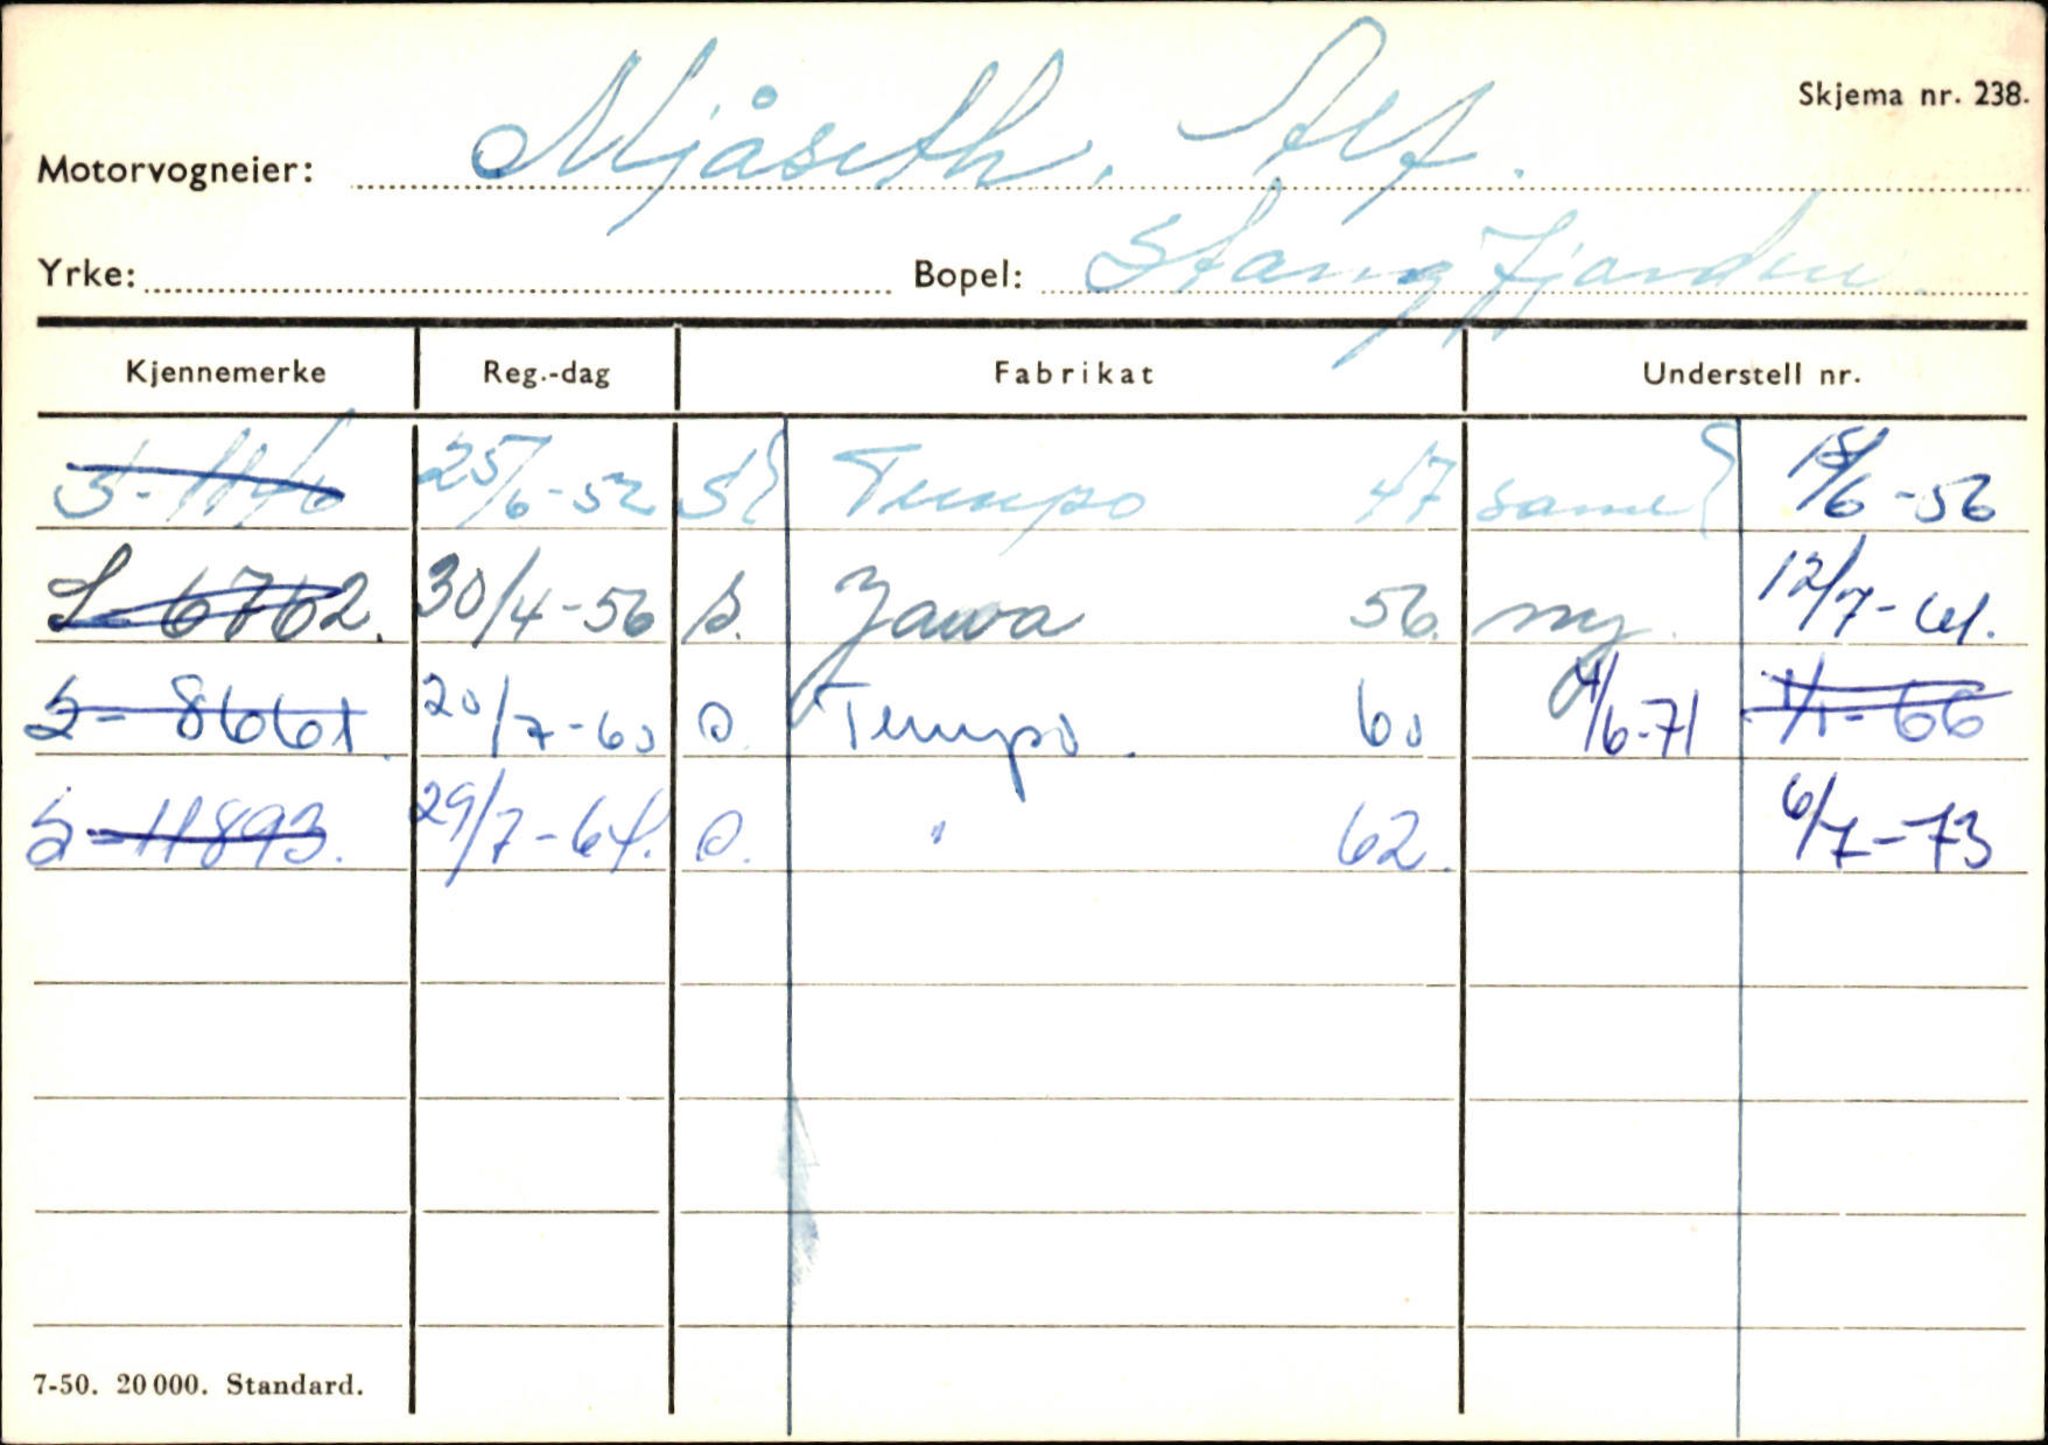 Skjema nr. 238.
Motorvogneier: Mjåseth, Alf.
Yrke: Bopel: Stangfjorden.
Kjennemerke Reg.-dag Fabrikat Understell nr.
S-1140 25/6-52 S Tempo 47 same 18/6-56
S-6762. 30/4-56 S. Jawa 56. ny. 12/7-61.
S-8661 20/7-60 O. Tempo. 60 4/6-71 1/1-66
S-11893. 29/7-64. O. " 62. 6/7-73
7-50. 20 000. Standard.